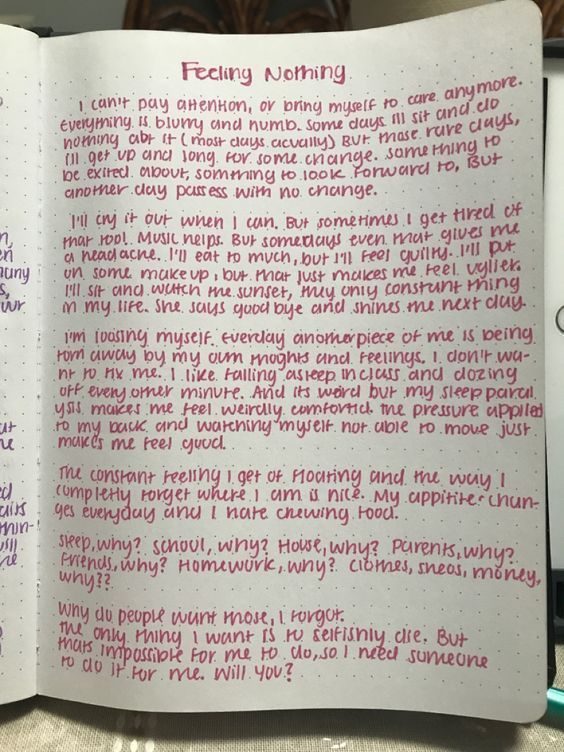 Feeling Nothing
I can't pay attention, or bring myself to care anymore.
Everything is blurry and numb. Some days I'll sit and do
nothing abt it (most days acually) But those rare days,
I'll get up and long for some change. Something to
be exited about, somthing to look forward to, But
another day passess with no change.
I'll cry it out when I can. But sometimes I get tired of
that too! Music helps. But somedays even that gives me
a headache. I'll eat to much, but I'll feel guilty. I'll put
on some makeup, but that just makes me feel uglier.
I'll sit and watch the sunset, they only constant thing
in my life. She says good bye and shines the next day.
I'm loosing myself. Everday another piece of me is being
torn away by my own thoghts and feelings. I don't wa-
nt to fix me. I like falling asleep in class and dozing
off every other minute. And its weird but my sleep paral
ysis makes me feel weirdly comforted. the pressure applied
to my back and watching myself not able to move just
makes me feel good.
The constant feeling I get of floating and the way I
completly forget where I am is nice. My appitite chan-
ges everyday and I hate chewing food.
Sleep, why? School, why? House, why? Parents, why?
Friends, why? Homework, why? Clothes, shoes, money,
why??
Why do people want those, I forgot.
the only thing I want is to selfishly die. But
thats impossible for me to do, so I need someone
to do it for me. Will you?